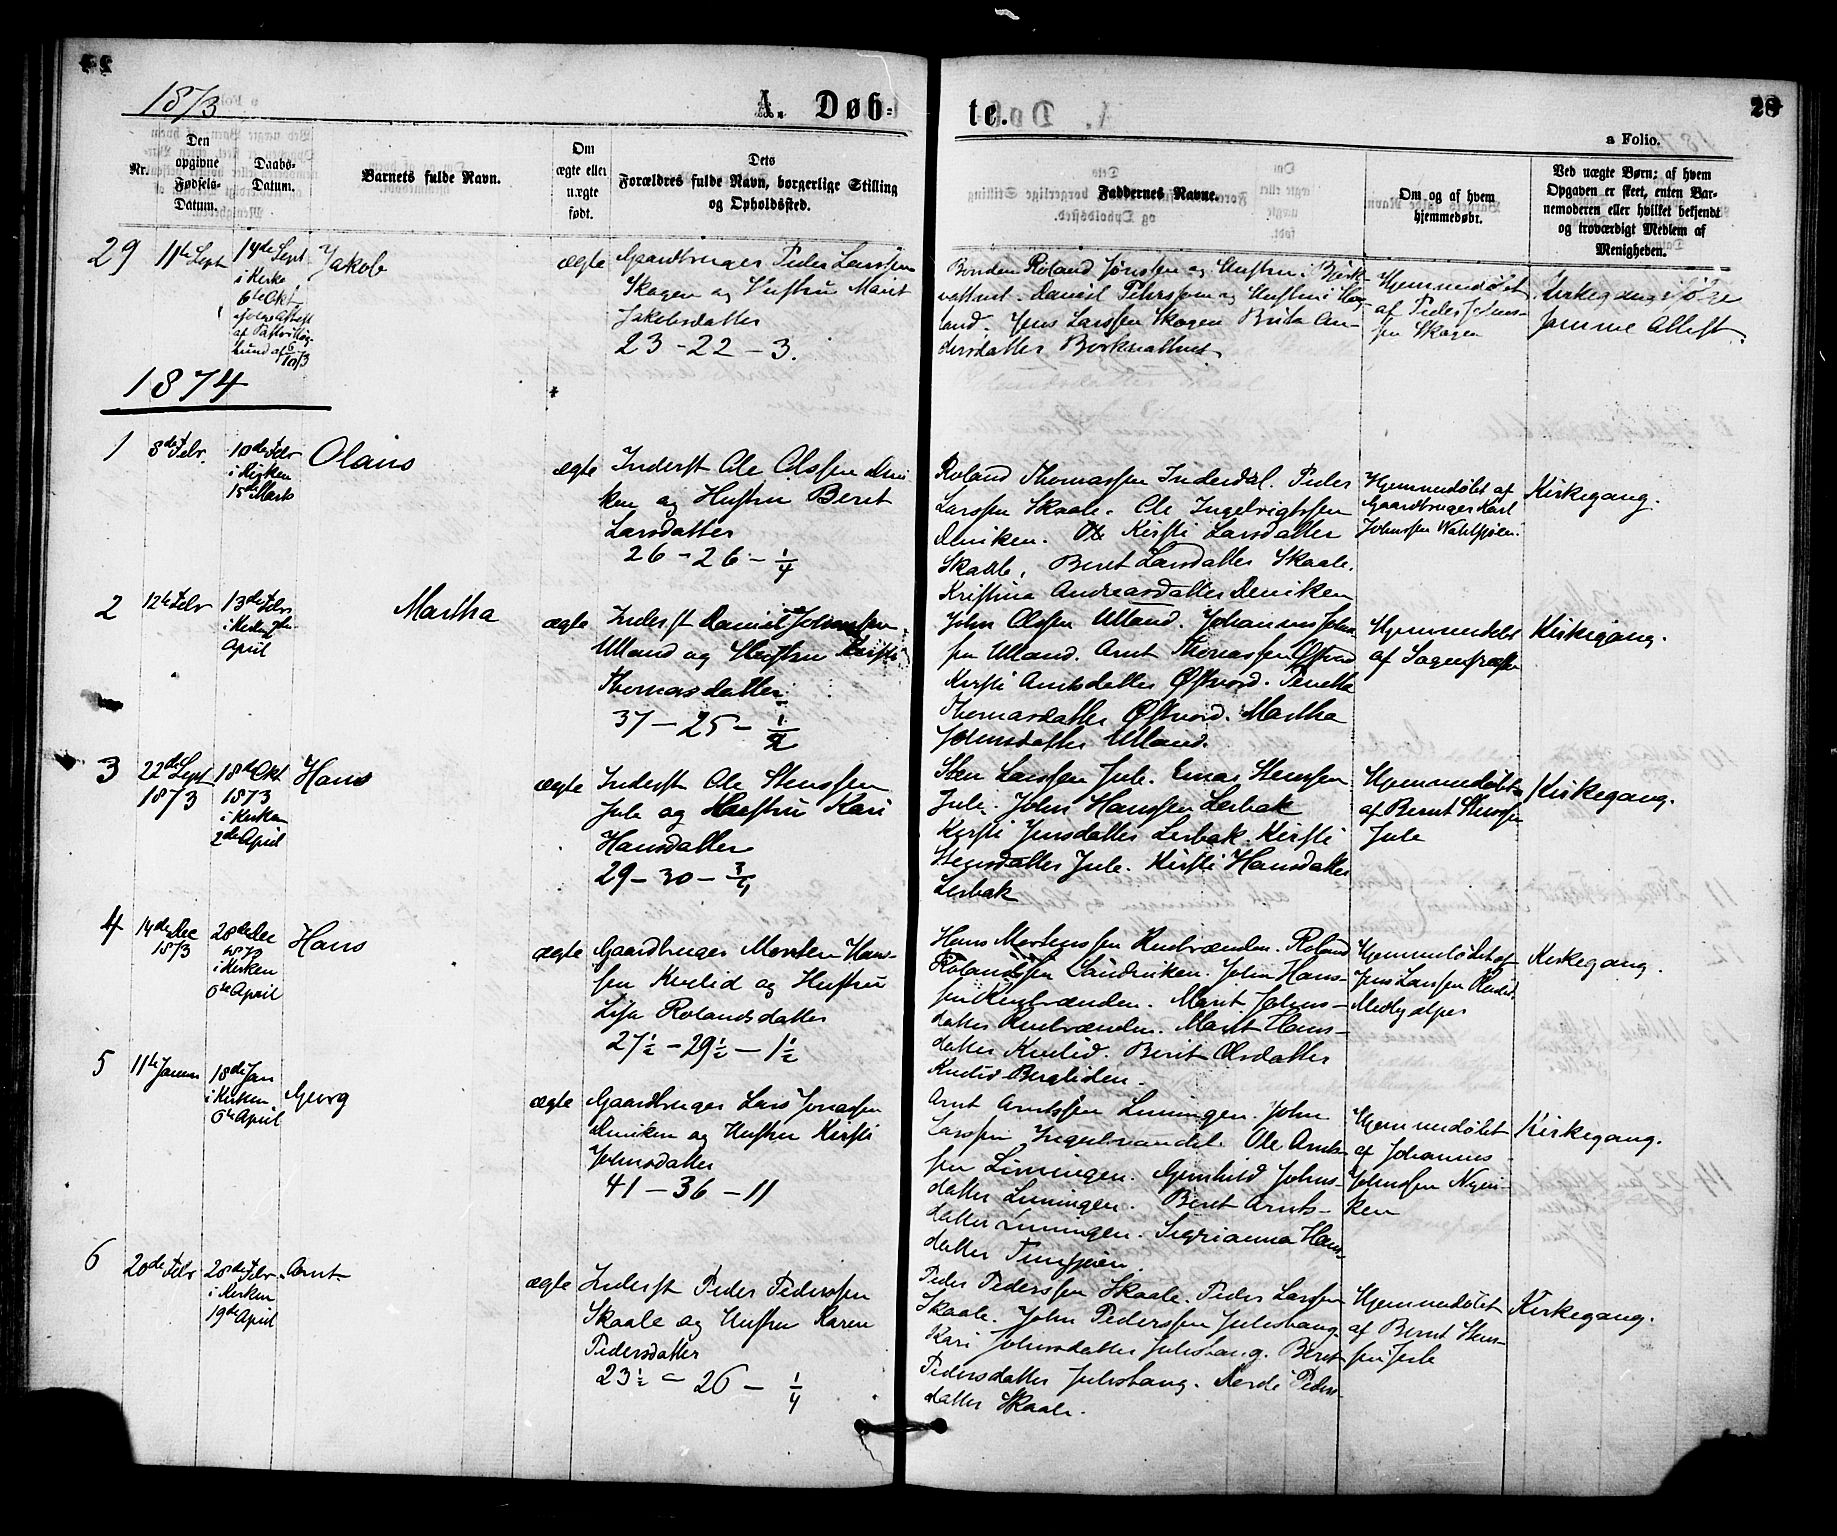 1873
A. Døb-
te.
28
a Folio.
Nr.
Den opgivne Fødsels-Datum.
Daabs-Datum.
Barnets fulde Navn.
Om ægte eller uægte født.
Dets Forældres fulde Navn, borgerlige Stilling og Opholdssted.
Faddernes Navne.
Om og af hvem hjemmedøbt.
Ved uægte Børn: af hvem Opgaven er skeet, enten Barnemoderen eller hvilket bekjendt og troværdigt Medlem af Menigheden.
29
11te Sept
14de Sept
i Kirke
6te Okt
Jakob
ægte
Gaardbruger Peder Larssen
Skogen og Hustru Marit
Jakobsdatter
23 - 22 - 3.
Bonden Roland Jonssen og Hustru i Bjørk-
vattnet. Daniel Pehrssen og Hustru i Hog-
land. Jens Larssen Skogen Brita An-
dersdatter Borkvattnet
Hjemmedøbt
af Peder Johns-
sen Skogen
Kirkegang ifølge
samme Attest.
1874
1
8de Febr.
10de Febr
i Kirken
15de Marts
Olaus
ægte
Inderst Ole Olssen Devi-
ken og Hustru Beret
Larsdatter
26 - 26 - 1/4
Roland Thomassen Inderdal. Peder
Larssen Skaale. Ole Ingebrigtssen
Deviken. Kirsti Larsdatter
Skaale, Beret Larsdatter Skaale.
Kristina Andreasdatter Deviken
Hjemmedøbt af
Gaardbruger Karl
Johnssen
Kirkegang.
2
12te Febr
13de Febr
i Kirken
April
Martha
ægte
Inderst Daniel Johnssen
Ulland og Hustru Kirsti
Thomasdatter
37 - 25 - 1/2
John Olssen Ulland. Johannes John-
sen Ulland. Arnt Thomassen Østvord
Kirsti Arntsdatter Østvord. Penetta
Thomasdatter Østvord. Martha
Johnsdatter Ulland.
Hjemmedøbt
af Sognepræsten
Kirkegang.
3
22de Sept
1873
18de Okt
1873
i Kirken
2de April
Hans
ægte
Inderst Ole Stenssen
Jule og Hustru Kari
Hansdatter
29 - 30 - 3/4
Sten Larssen Jule. Einar Stenssen
Jule. John Hanssen Lerbak
Kirsti Jensdatter Lerbak. Kirsti
Stensdatter Jule. Kirsti Hansdatter
Lerbak
Hjemmedøbt
af Bernt Stenssen
Jule
Kirkegang.
4
14de Dec
1873
28de Dec
1873
i Kirken
6te April
Hans
ægte
Gaardbruger Morten Hans-
sen Kvelid og Hustru
Lisa Rolandsdatter
27 1/2 - 29 1/2 - 1 1/2
Hans Mortenssen Kvebrænden. Roland
Rolandssen Sandviken. John Hans-
sen Kvebrænden. Marit Johns-
datter Kvebrænden. Marit Hans-
datter Kvelid. Berit Olsdatter
Kvelid Bergliden.
Hjemmedøbt af
Jens Larssen Kvelid
Medhjælper
Kirkegang.
5
11te Januar
18de Jan
i Kirken
6te April
Georg
ægte
Gaardbruger Lars Jonassen
Deviken og Hustru Kirsti
Johnsdatter
41 - 36 - 11
Arnt Arntssen Limingen. John
Larssen Ingulsvandet. Ole Arnts-
sen Limingen. Gunhild Johns-
datter Limingen. Beret Arnts-
datter Limingen. Sigrianna Hans-
datter
Hjemmedøbt
af Johannes
Johnssen Nyvi-
ken
Kirkegang.
6
20de Febr
28de Febr
i Kirken
19de April
Arnt
ægte
Inderst Peder Pederssen
Skaale og Hustru Karen
Pedersdatter
23 1/2 - 26 - 1/4
Peder Pederssen Skaale. Peder Larssen
Skaale. John Pederssen Julestang.
Kari Johnsdatter Julestang. Beret
Pedersdatter Julestang. Kerde Peders-
datter Skaale.
Hjemmedøbt
af Bernt Stens-
sen Jule
Kirkegang.